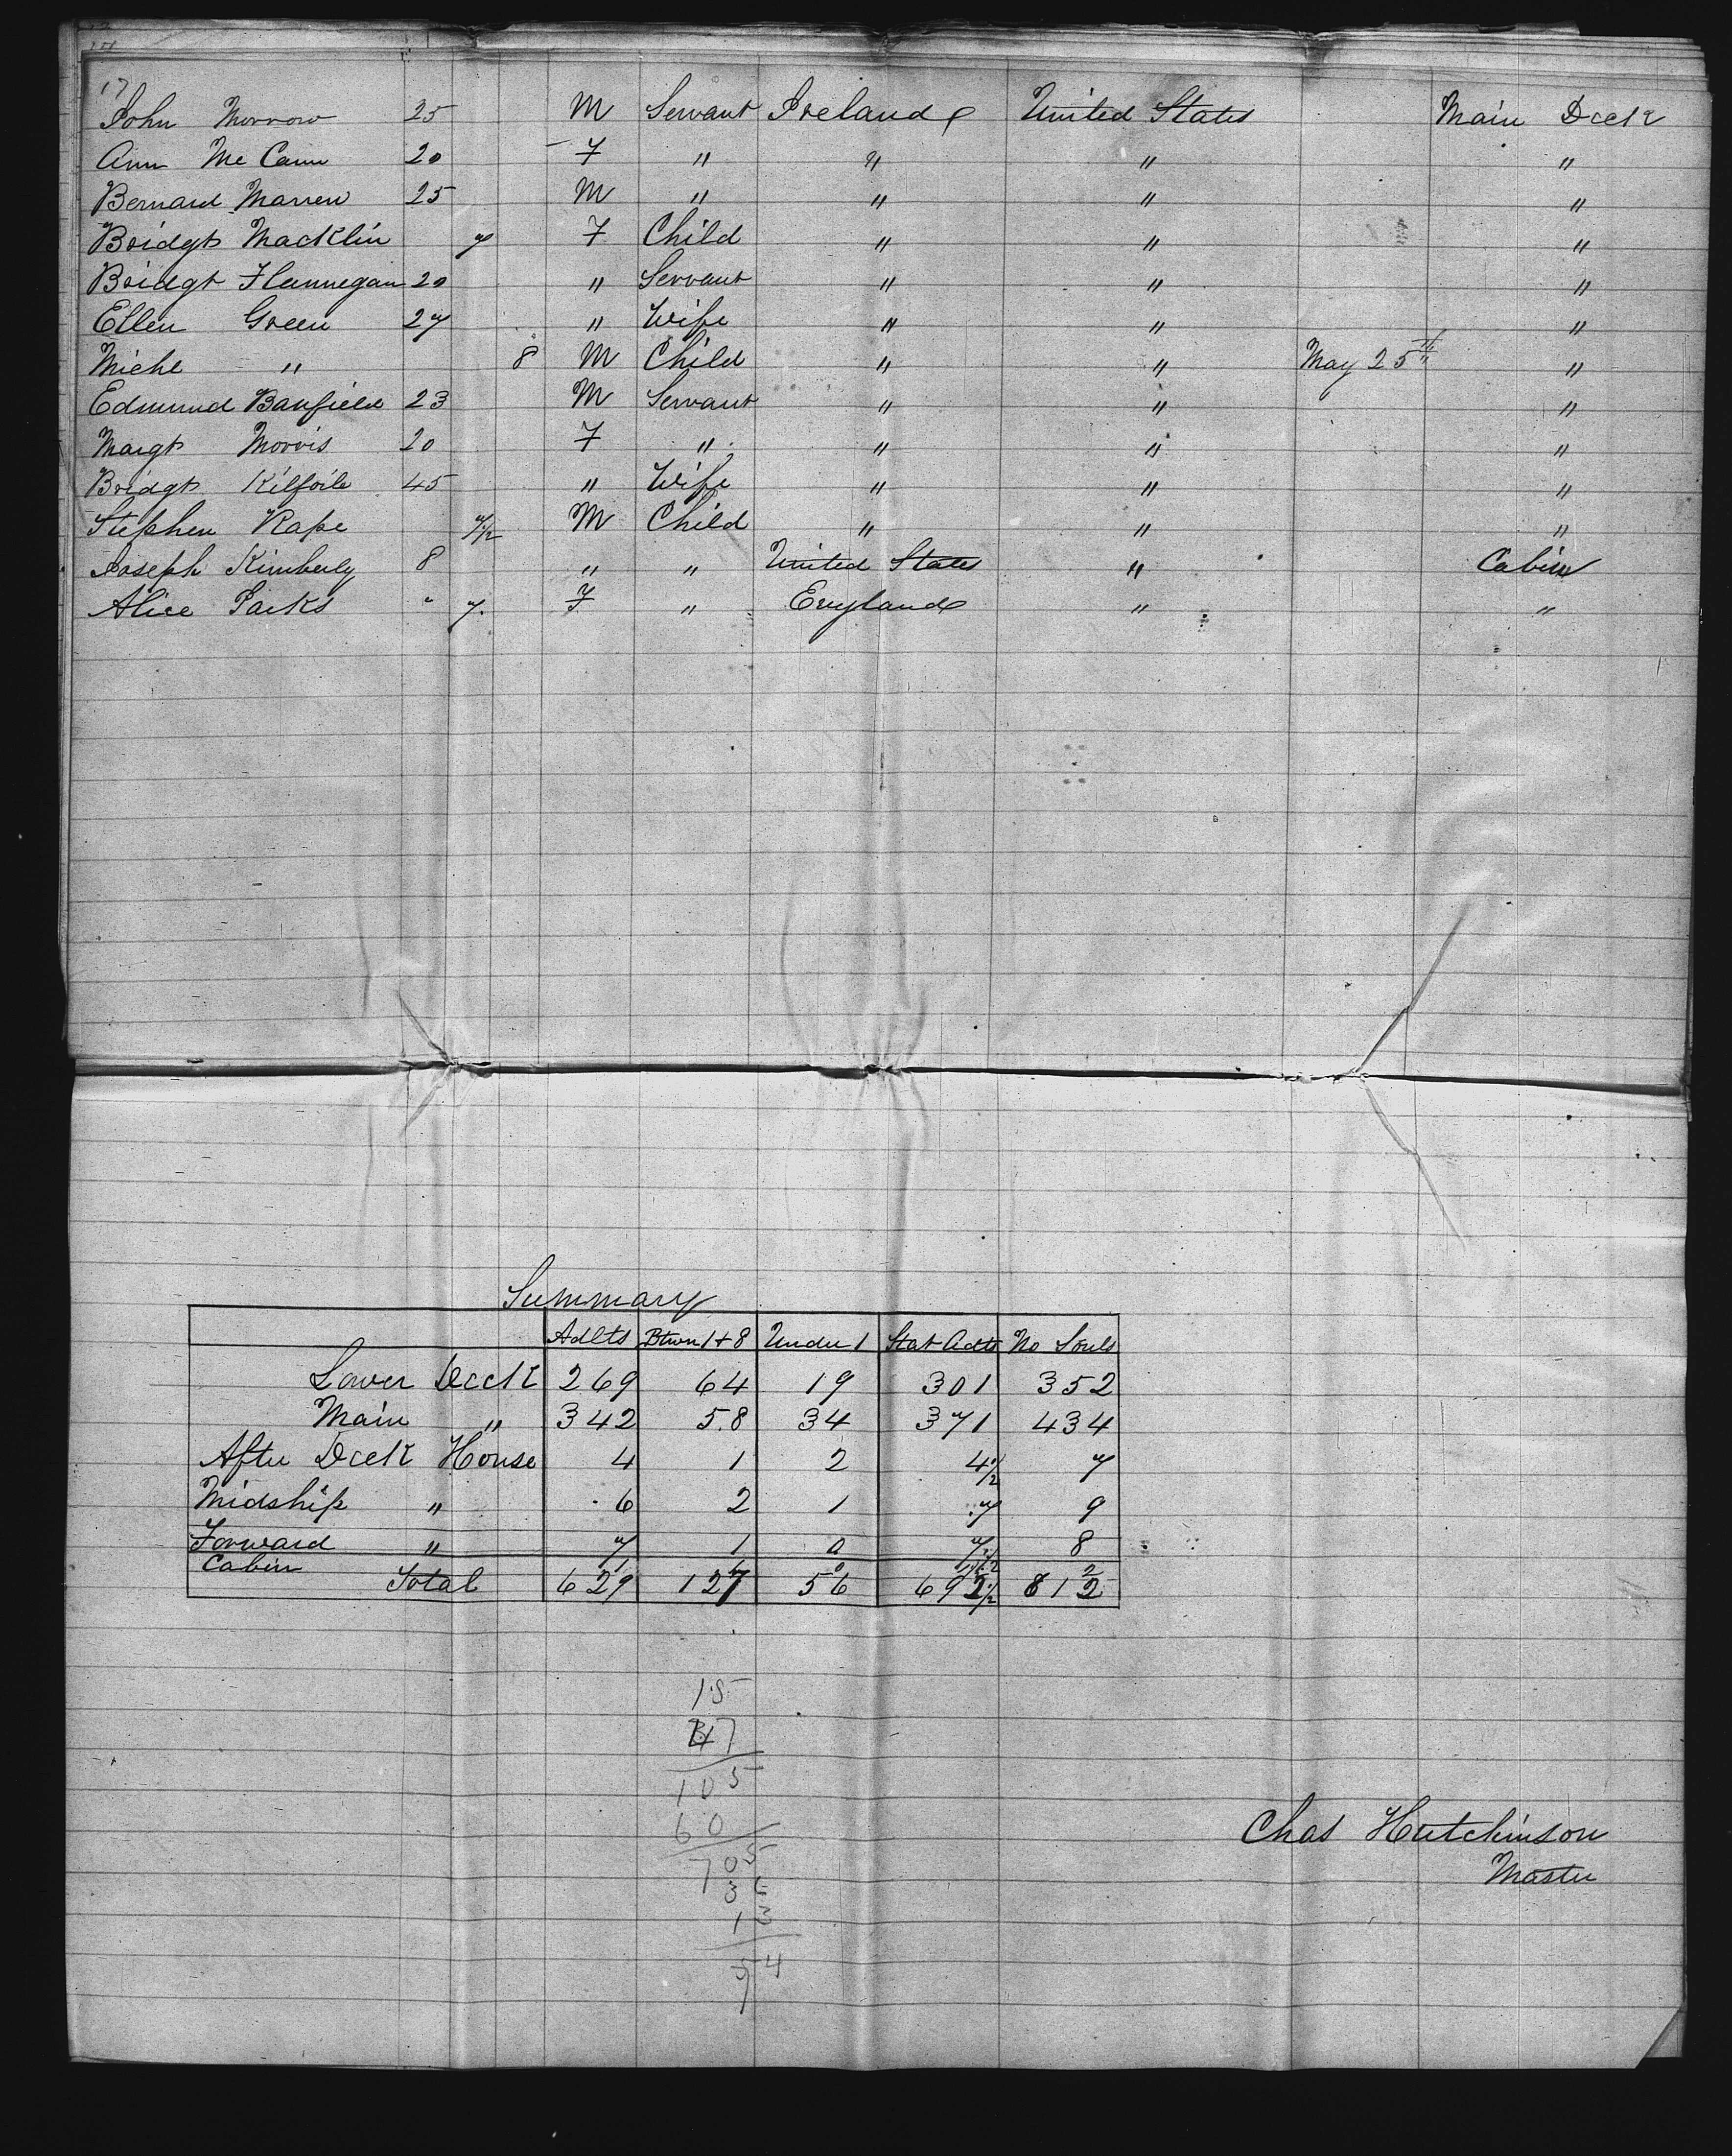 17
John Morrow 25 M Servant Ireland United States Main Deck
Ann Mc Cann 20 F " " " "
Bernard Marren 25 M " " " "
Bridgt Macklin 7 F Child " " "
Bridgt Flannegan 20 " Servant " " "
Ellen Green 27 " Wife " " "
Michl " 8 M Child " " May 25th "
Edmund Banfield 23 M Servant " " "
Margt Morris 20 F " " " "
Bridgt Kilfoile 45 " Wife " " "
Stephen Rape 7/12 M Child " " "
Joseph Kimberly 8 " " United States " Cabin
Alice Parks " 7 F " England " "
Summary
Adlts Btwn 1 + 8 Under 1 Stat Adts No Souls
Lower Deck 269 64 19 301 352
Main " 342 58 34 371 434
After Deck House 4 1 2 4 1/2 7
Midship " 6 2 1 7 9
Forward " 7 1 0 7 1/2 8
Cabin 1 1 0 1 1/2 2
Total 629 127 56 692 1/2 812
15
47
105
60
705
36
13
54
Chas Hutchinson
Master